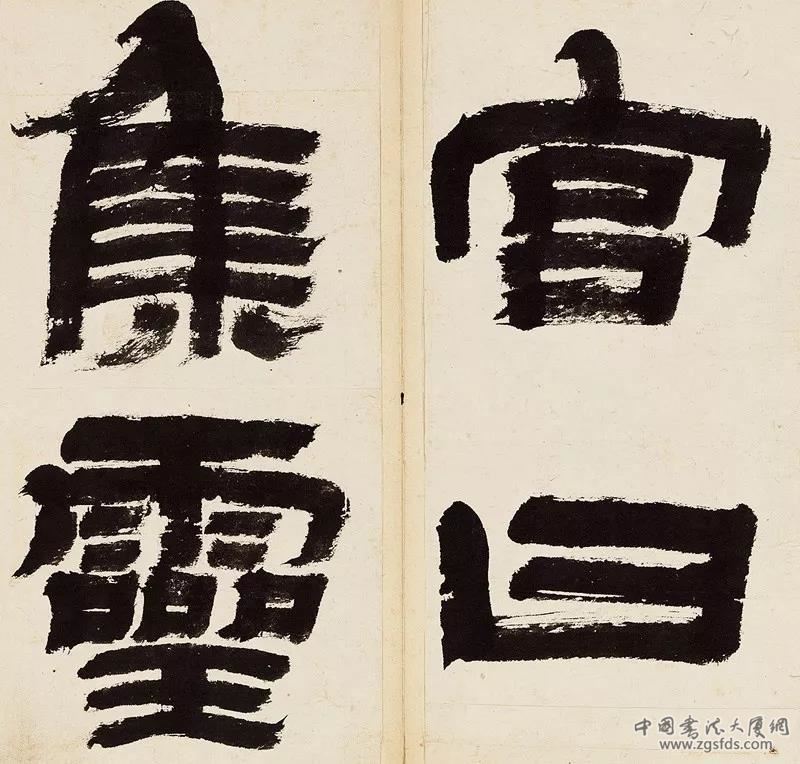 宮曰
集靈
中國書法大厦網
www.zgsfds.com